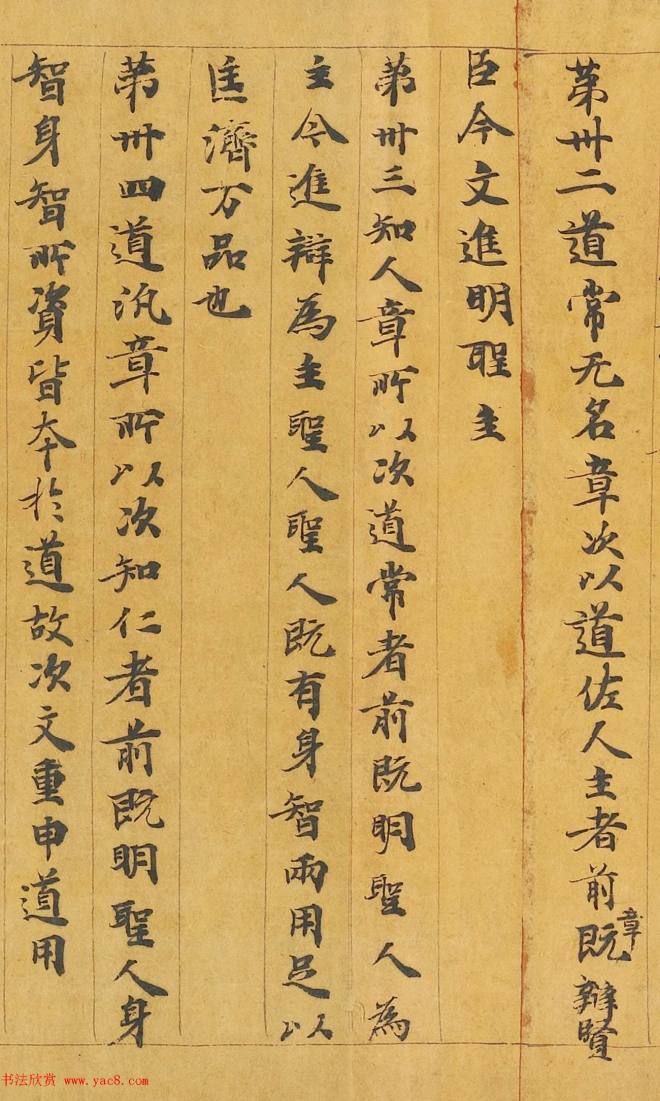 第卅二道常无名章次以道佐人主者前既章辯賢
臣今文進明聖主
第卅三知人章所以次道常者前既明聖人為
主今進辯為主聖人聖人既有身智兩用足以
匡濟万品也
第卅四道汎章所以次知仁者前既明聖人身
智身智所資皆本於道故次文重申道用
书法欣赏 www.yac8.com